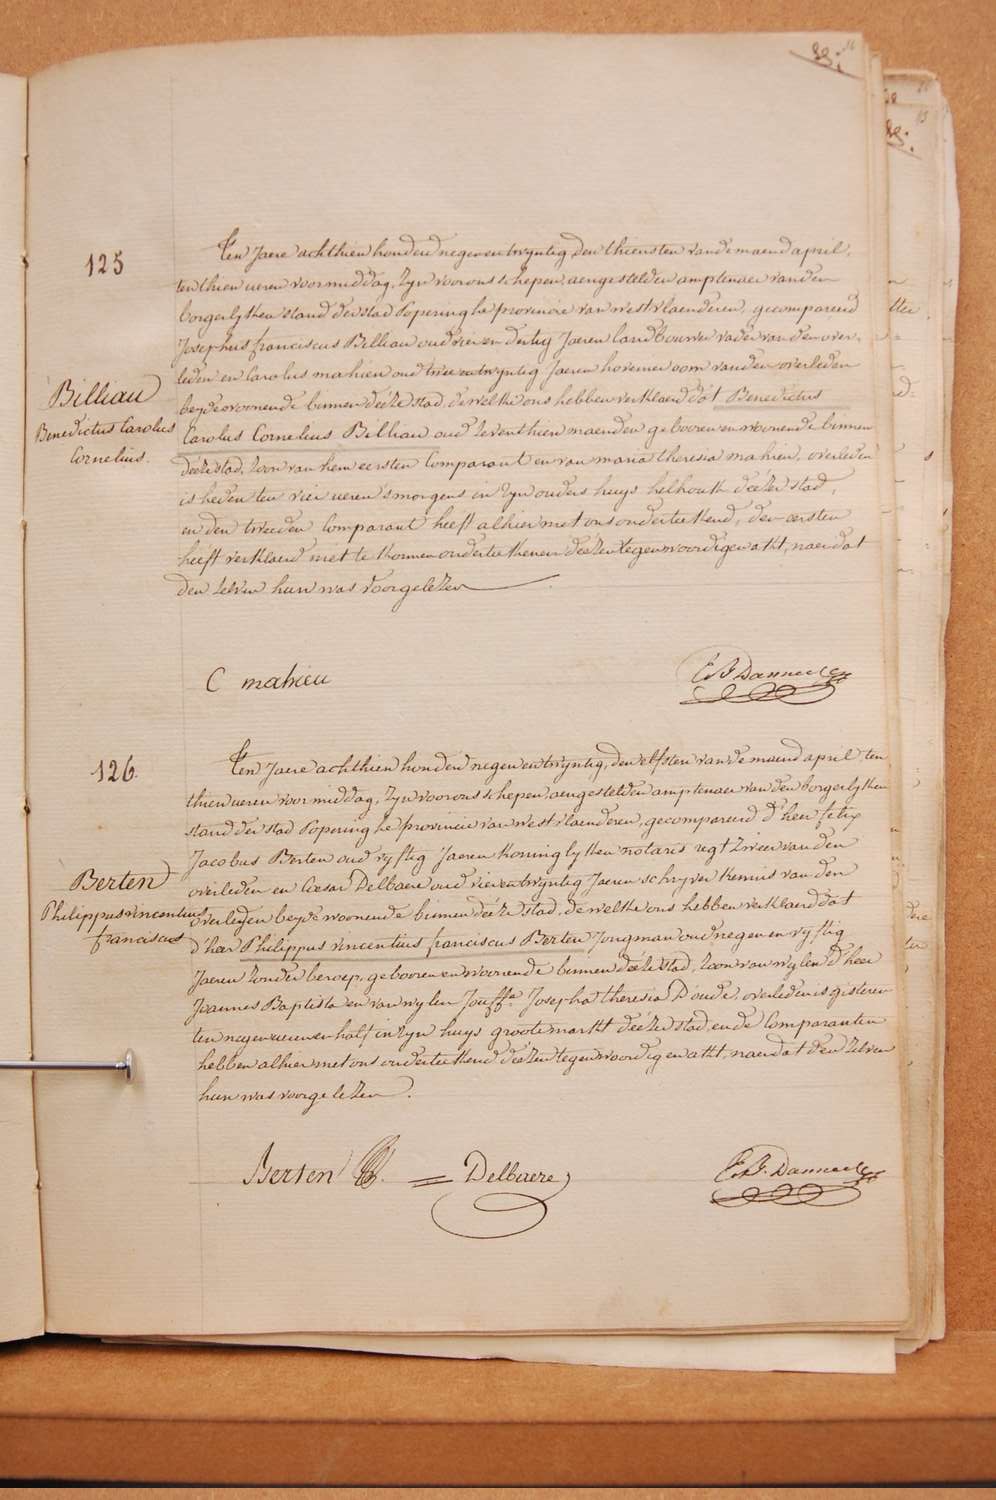 125
Ten Jaere achthien honderd negenentwyntig den thiensten van de maend april,
ten thien ueren voormiddag, zyn voor ons schepen, aengestelden amptenaer van den
borgerlyken stand der stad Poperinghe provincie van westvlaenderen, gecompareerd
Josephus franciscus Billiau oud vier en dertig Jaeren Landbouwer vader van den over-
leden en Carolus mahieu oud twee entwyntig Jaeren hovenier oom van den overleden
beyde woonende binnen deéze stad, de welke ons hebben verklaerd dat Benedictus
Carolus Cornelius Billiau oud zeventhien maenden gebooren en woonende binnen
deéze stad, zoon van hem eersten Comparant en van maria theresia mahieu, overleden
is heden ten vier ueren smorgens in zyn ouders huys helhouk deézer stad,
en den tweeden Comparant heeft alhier met ons onderteekend, den eersten
heeft verklaerd niet te konnen onderteekenen deézen tegenwoordigen akt, naer dat
den zelven hun was voorgelezen
Billiau
Benedictus Carolus
Cornelius.
C mahieu
126.
Ten Jaere achthien honderd negenentwyntig, den elfsten van de maend april ten
thien ueren voormiddag, zyn voor ons schepen, aengestelden amptenaer van den borgerlyken
stand der stad Poperinghe provincie van westvlaenderen, gecompareerd d'heer felix
Jacobus Berten oud vyftig Jaeren Koninglyken notaris regtzweer van den
overleden en Cœsar Delbaere oud vierentwyntig Jaeren schryver kennis van den
overleden beyde woonende binnen deéze stad, de welke ons hebben verklaerd dat
d'heer Philippus vincentius franciscus Berten Jongman oud negen en vyftig
Jaeren zonder beroep, gebooren en woonende binnen deeze stad, zoon van wylen d'heer
Joannes Baptista en van wylen Jouff.e Josepha theresia D'oude, overleden is gisteren
ten negen eueren en half in zyn huys groote markt deézer stad, en de Comparanten
hebben alhier met ons onderteekend deézen tegenwoordigen akt, naer dat den zelven
hun was voorgelezen.
Berten
Philippus vincentius
franciscus
Berten
Delbaere